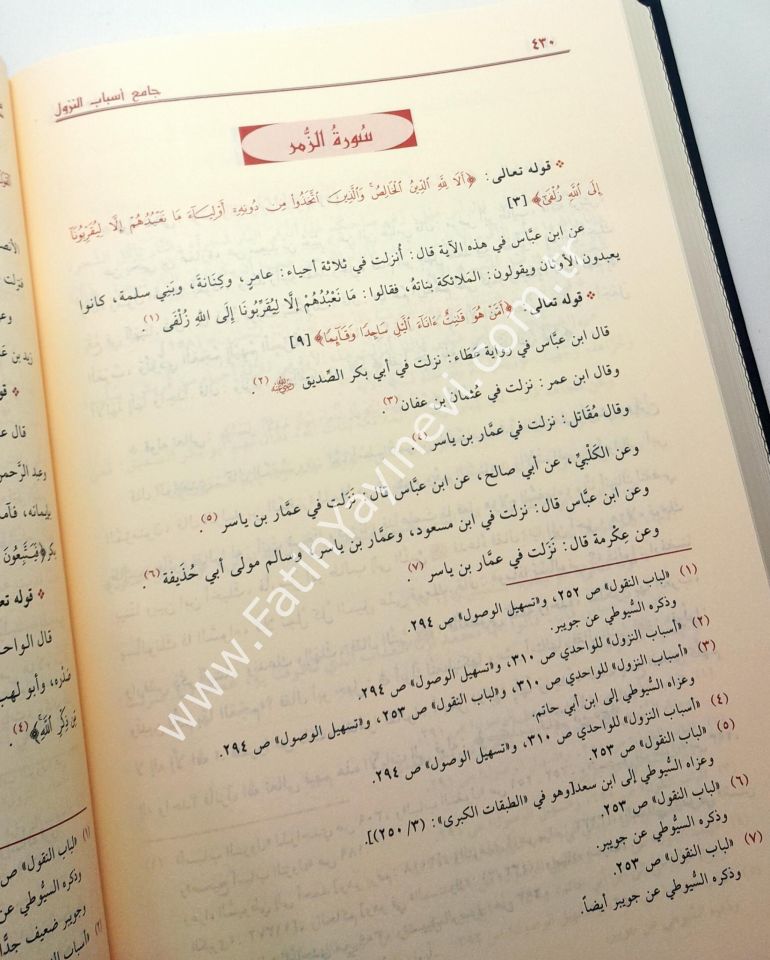 ٤٣٠
جامع أسباب النزول
سُورَةُ الزُّمَر
❖ قوله تعالى: ﴿أَلَا لِلَّهِ الدِّينُ الْخَالِصُ وَالَّذِينَ اتَّخَذُوا مِن دُونِهِ أَوْلِيَاءَ مَا نَعْبُدُهُمْ إِلَّا لِيُقَرِّبُونَا
إِلَى اللَّهِ زُلْفَى﴾ [٣]
عن ابن عبَّاس في هذه الآية قال: أُنزلت في ثلاثة أحياء: عامر، وكِنَانَةَ، وبَنِي سلمة، كانوا
يعبدون الأوثان ويقولون: المَلائكة بناتهُ، فقالوا: مَا نَعْبُدُهُمْ إِلَّا لِيُقَرِّبُونَا إِلَى اللَّهِ زُلْفَى (١).
❖ قوله تعالى: ﴿أَمَّنْ هُوَ قَانِتٌ ءَانَاءَ الَّيْلِ سَاجِدًا وَقَائِمًا﴾ [٩]
قال ابن عبَّاس في رواية عَطَاء: نزلت في أبي بكر الصِّديق رضي الله عنه (٢).
وقال ابن عمر: نزلت في عُثمان بن عفان (٣).
وقال مُقَاتل: نزلت في عمَّار بن ياسر (٤).
وعن الكَلْبيِّ، عن أبي صالح، عن ابن عبَّاس قال: نَزَلت في عمَّار بن ياسر (٥).
وعن ابن عباس قال: نزلت في ابن مسعود، وعمَّار بن ياسر، وسالم مولى أبي حُذَيفة (٦).
وعن عِكْرمة قال: نَزَلت في عمَّار بن ياسر (٧).
(١) «لباب النقول» ص ٢٥٢، و«تسهيل الوصول» ص ٢٩٤.
وذكره السُّيوطي عن جويبر.
(٢) «أسباب النزول» للواحدي ص ٣١٠، و«تسهيل الوصول» ص ٢٩٤.
(٣) «أسباب النزول» للواحدي ص ٣١٠، و«لباب النقول» ص ٢٥٣، و«تسهيل الوصول» ص ٢٩٤.
وعزاه السُّيوطي إلى ابن أبي حاتم.
(٤) «أسباب النزول» للواحدي ص ٣١٠، و«تسهيل الوصول» ص ٢٩٤.
(٥) «لباب النقول» ص ٢٥٣.
وعزاه السُّيوطي إلى ابن سعد[وهو في «الطبقات الكبرى»: (٣/ ٢٥٠)].
(٦) «لباب النقول» ص ٢٥٣.
وذكره السُّيوطي عن جويبر.
(٧) «لباب النقول» ص ٢٥٣.
وذكره السُّيوطي عن جويبر أيضاً.
www.FatihYayinevi.com.tr
زيد بن
❖ قو
قال
وعبد الرَّحمن
بإيمانه، فآمن
❖ قوله تعا
قال الواحـ
صَدْره، وأبو لهب
(١) «لباب النقول» ص
وذكره السُّيوطي عن
وجويبر ضعيف جدًّا
(٢) «أسباب